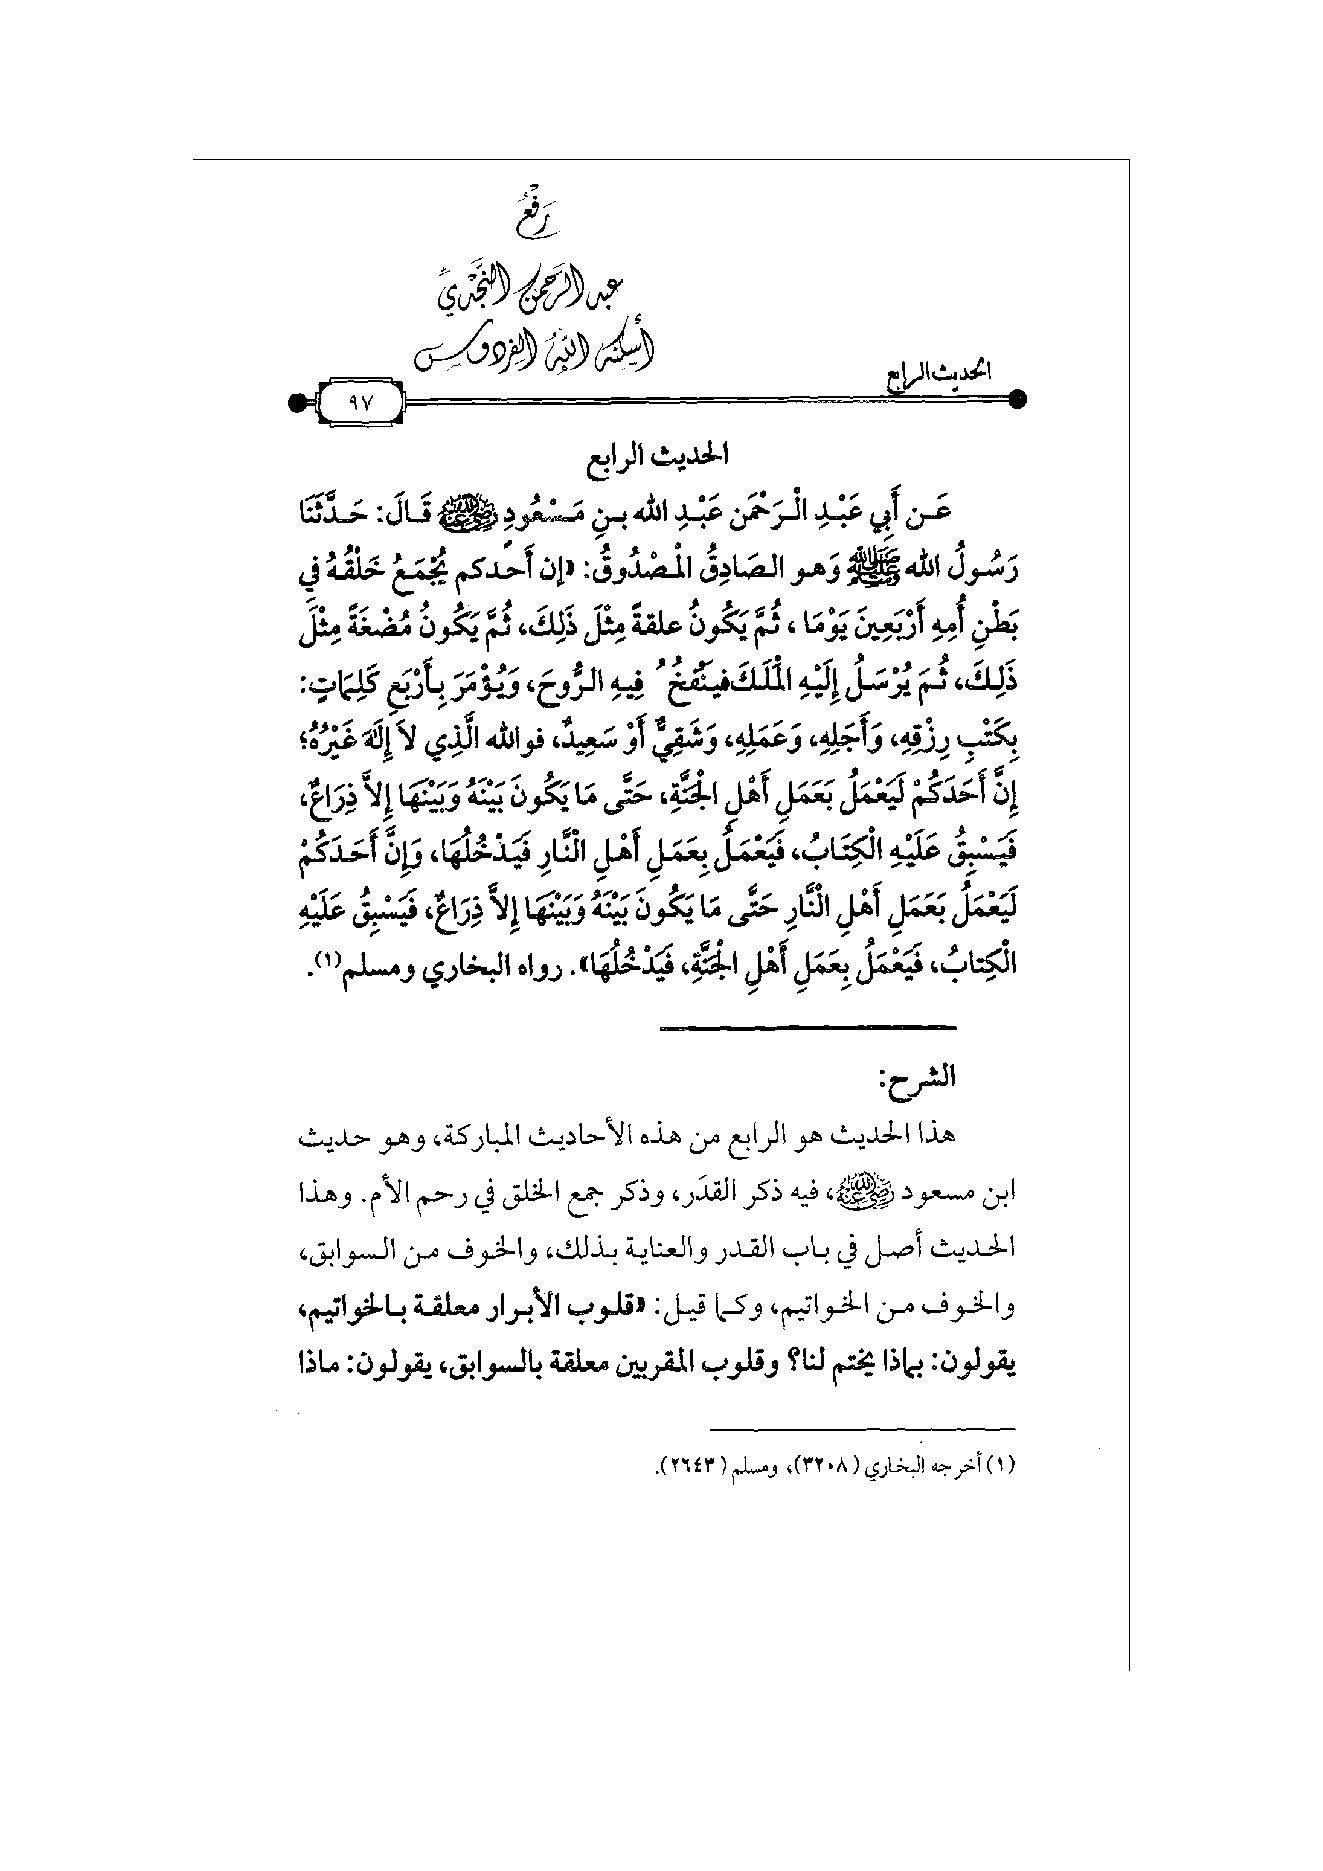 رَفْعُ
عبد الرحمن النجدي
أسكنه الله الفردوس
الحديث الرابع
٩٧
الحديث الرابع
عَـن أَبِي عَبْـدِ الْـرَحْمَن عَبْـدِ الله بـنِ مَـسْعُودٍ رضي الله عنه قَـالَ: حَـدَّثَنَا
رَسُـولُ الله ﷺ وَهـو الـصَادِقُ الْمَـصْدُوقُ: «إن أحَدكم يُجْمَعُ خَلْقُهُ في
بَطْنِ أُمِهِ أَرْبَعِينَ يَوْمَا ، ثُمَّ يَكُونُ علقةً مِثْلَ ذَلِكَ، ثُمَّ يَكُونُ مُضْغَةً مِثْلَ
ذَلِكَ، ثُمَ يُرْسَلُ إِلَيْهِ الْمَلَكَ فيَنْفُخُ فِيهِ الرُّوحَ، وَيُؤْمَرَ بِأَرْبَعِ كَلِمَاتٍ:
بِكَتْبِ رِزْقِهِ، وَأَجَلِهِ، وَعَمَلِهِ، وَشَقِيٌّ أَوْ سَعِيدٌ، فوالله الَّذِي لاَ إِلَهَ غَيْرُهُ؛
إِنَّ أَحَدَكُمْ لَيَعْمَلُ بَعَمَلِ أَهْلِ الجَنَّةِ، حَتَّى مَا يَكُونَ بَيْنَهُ وَبَيْنَهَا إِلاَّ ذِرَاعٌ،
فَيَسْبِقُ عَلَيْهِ الْكِتَابُ، فَيَعْمَلُ بِعَمَلِ أَهْلِ الْنَّارِ فَيَدْخُلُهَا، وَإِنَّ أَحَدَكُمْ
لَيَعْمَلُ بَعَمَلِ أَهْلِ الْنَّارِ حَتَّى مَا يَكُونَ بَيْنَهُ وَبَيْنَهَا إِلاَّ ذِرَاعٌ، فَيَسْبِقُ عَلَيْهِ
الْكِتابُ، فَيَعْمَلُ بِعَمَلِ أَهْلِ الجَنَّةِ، فَيَدْخُلُهَا». رواه البخاري ومسلم(١).
الشرح:
هذا الحديث هو الرابع من هذه الأحاديث المباركة، وهو حديث
ابن مسعود رضي الله عنه، فيه ذكر القدَر، وذكر جمع الخلق في رحم الأم. وهذا
الحديث أصل في باب القدر والعناية بذلك، والخوف من السوابق،
والخوف من الخواتيم، وكما قيل: «قلوب الأبرار معلقة بالخواتيم،
يقولون: بماذا يختم لنا؟ وقلوب المقربين معلقة بالسوابق، يقولون: ماذا
(١) أخرجه البخاري (٣٢٠٨)، ومسلم (٢٦٤٣).